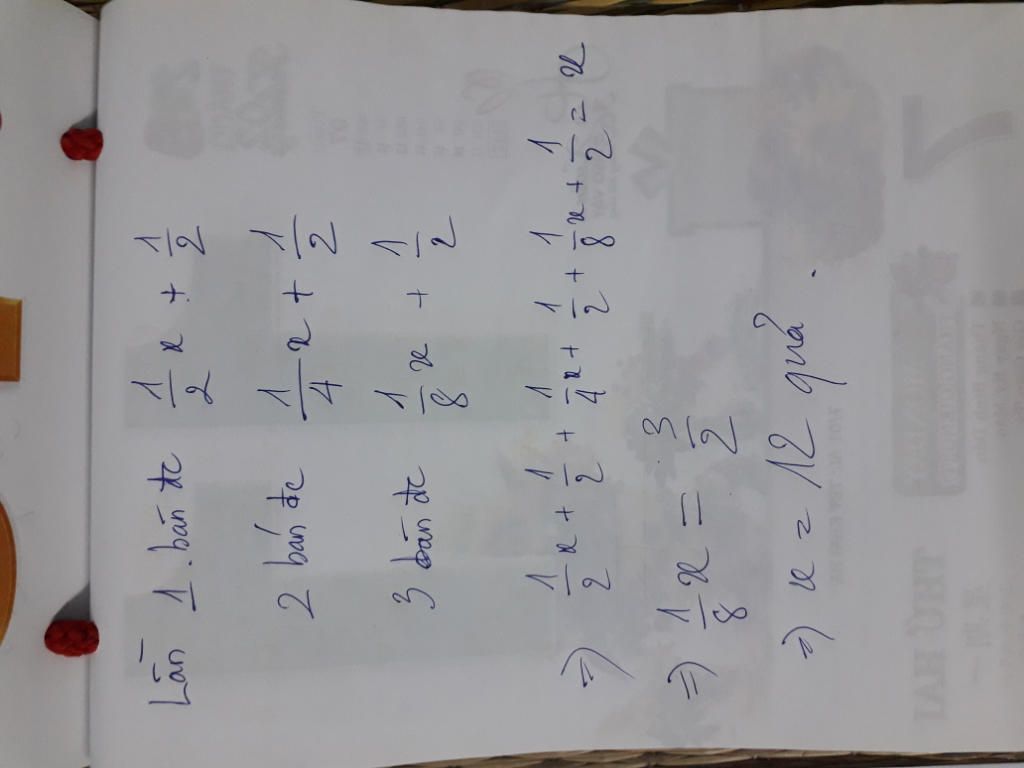 Lần 1 bán đc 1/2 x + 1/2
2 bán đc 1/4 x + 1/2
3 bán đc 1/8 x + 1/2
=> 1/2 x + 1/2 + 1/4 x + 1/2 + 1/8 x + 1/2 = x
=> 1/8 x = 3/2
=> x = 12 quả.